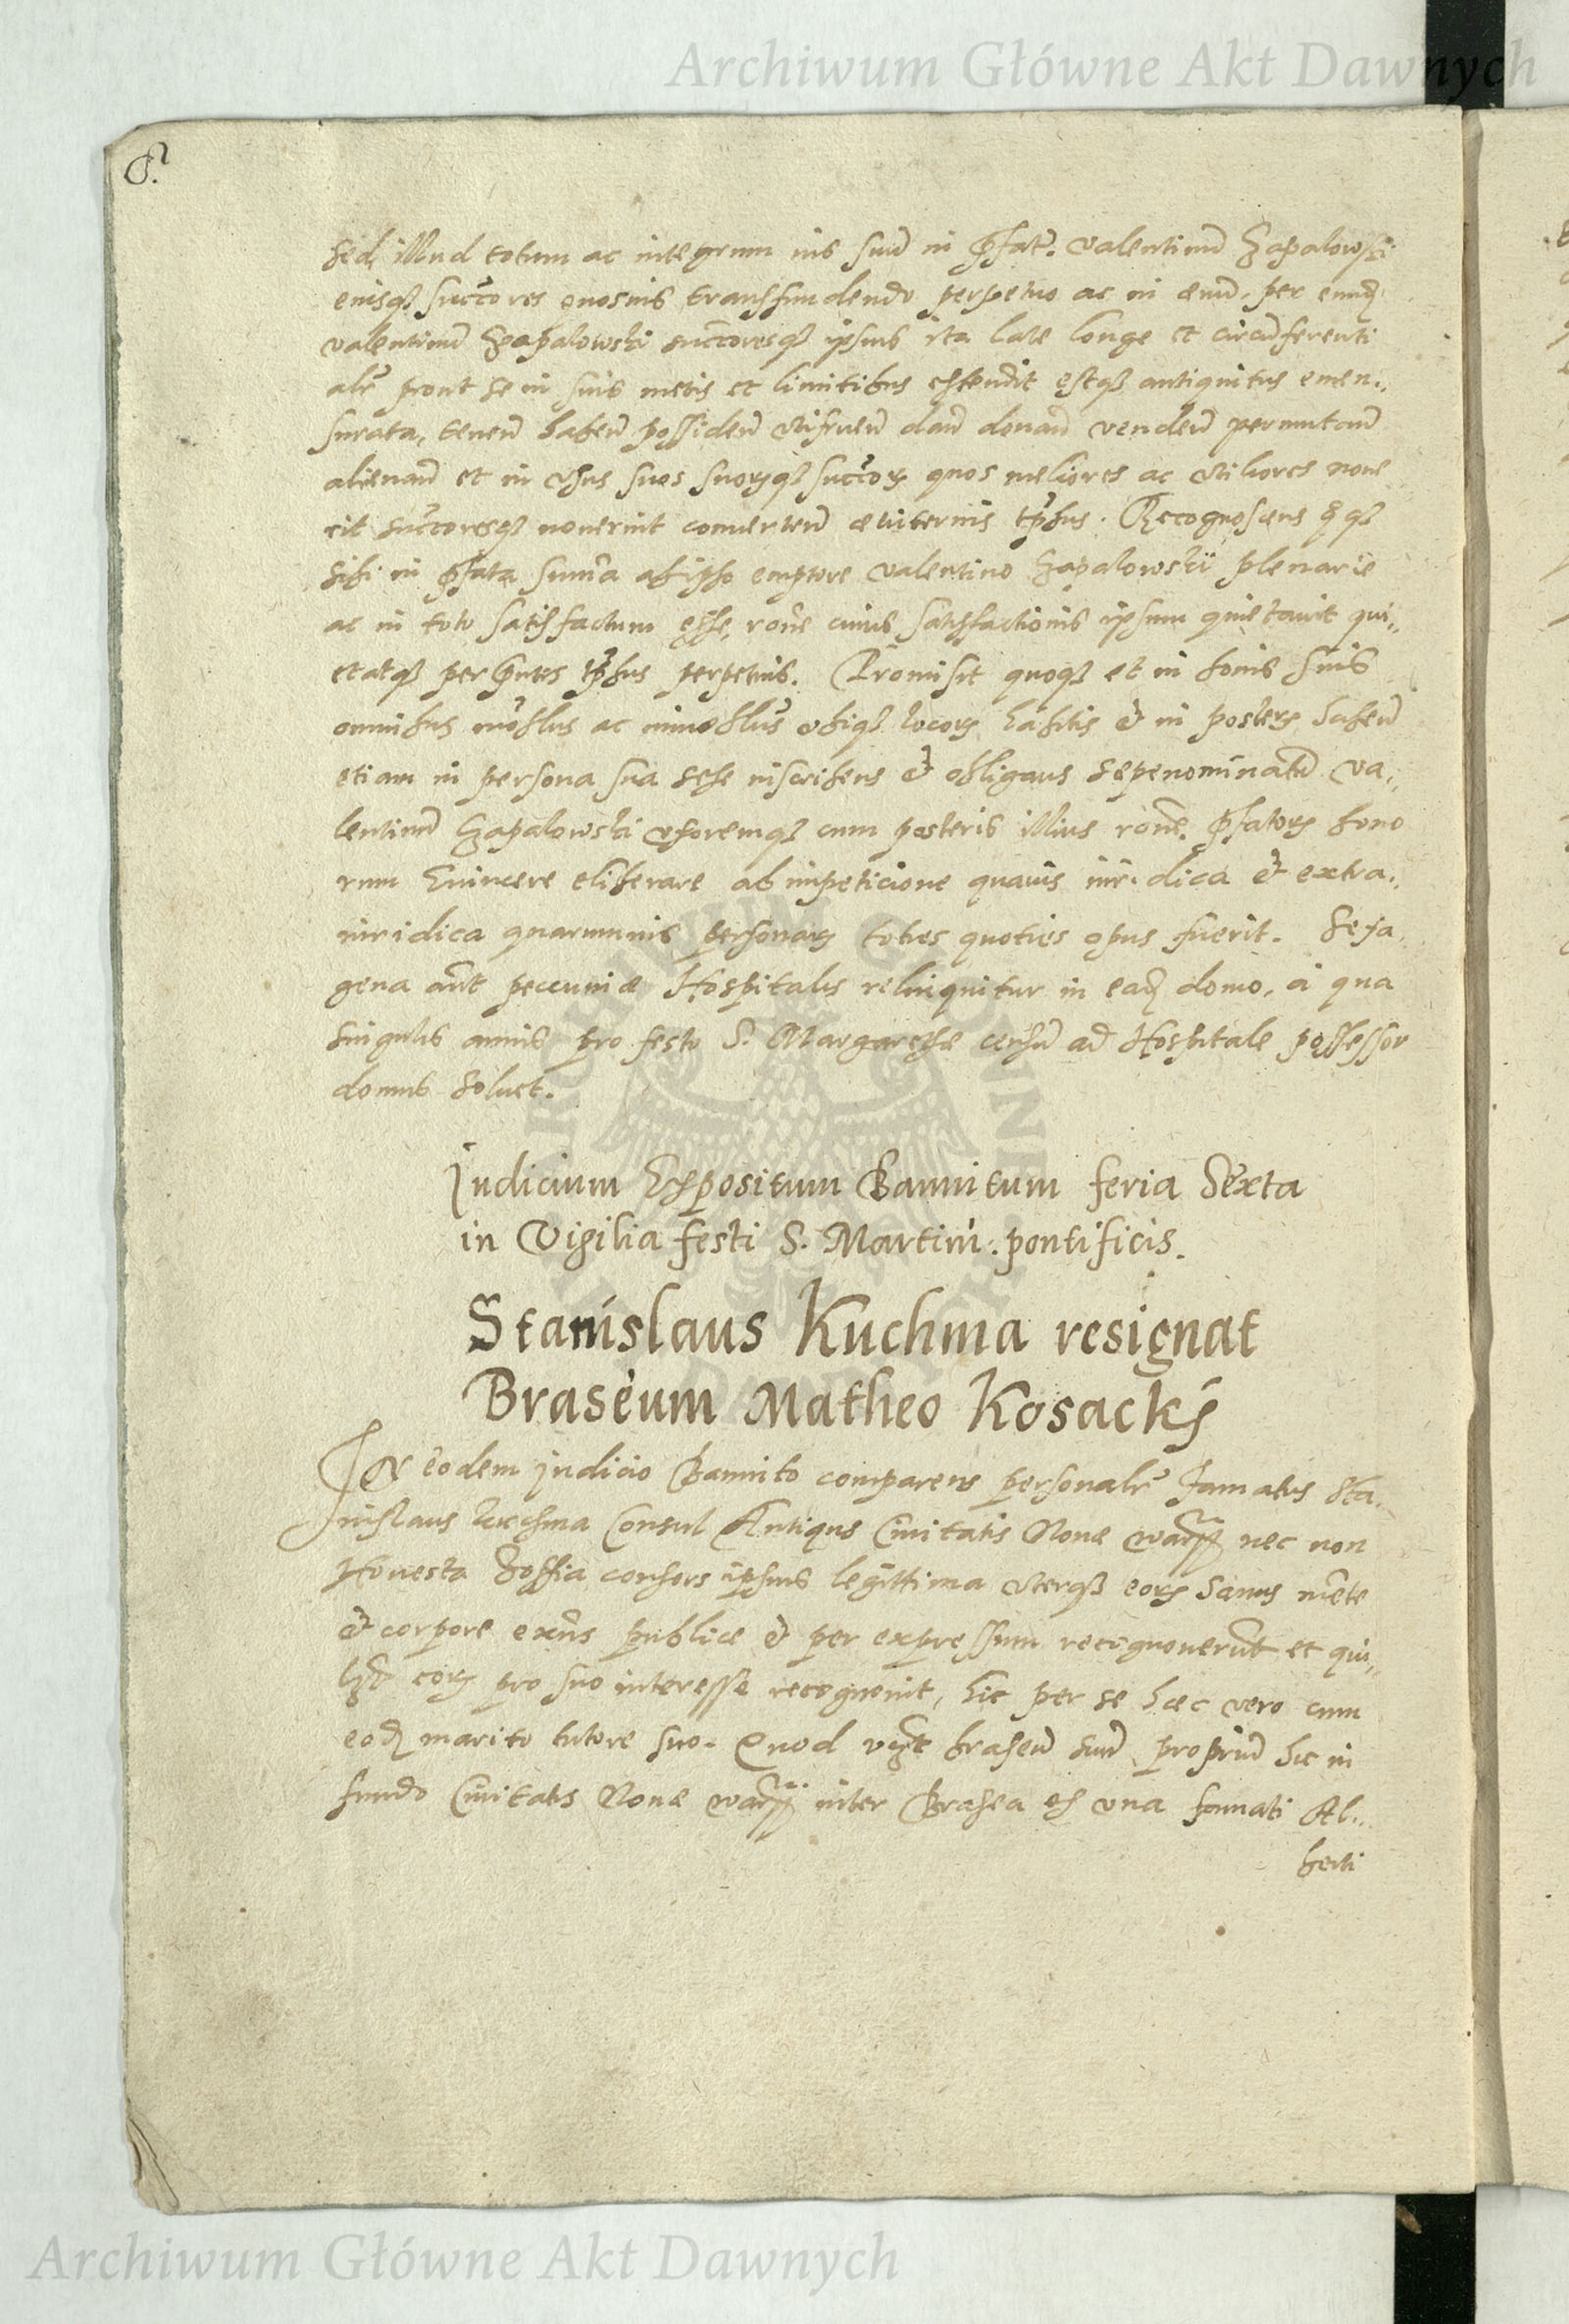 Archiwum Główne Akt Dawnych
8.
sed illud totum ac integrum ius suū in p̄fatū. Valentinū Czapalowski
eiusq3 succ̄ores quosuis transfundendo perpetuo ac in æuū. per eund̄
valentinū Czapalowski succ̄oresq3 ipsius ita late longe et circūferenti
alr̄ prout se in suis metis et limitibus extendit estq3 antiquitus emen..
surata, tenen̄ haben̄ possiden̄ utifruen̄ dan̄ donan̄ venden̄ permutan̄
alienan̄ et in usus suos suorq3 succ̄or quos meliores ac utiliores noue
rit succ̄oresq3 nouerint conuerten̄ æuiternis tp̄bus. Recognoscens
sibi in p̄fata sum̄a ab ipso emptore Valentino Czapalowski plenarie
ac in toto satisfactum esse, rōne cuius satisfactionis ipsum quietauit qui,,
etatq3 per p̄ntes tp̄bus perpetuis. Promisit quoq3 et in bonis suis
omnibus mōblus ac immoblus̄ ubiq3 locor habitis & in poster haben̄
etiam in persona sua sese inscribens & obligans sæpenominatū Va,
lentinū Czapalowski uxoremq3 cum posteris illius rōne. p̄fator bono
rum Euincere eliberare ab impeticione quauis iuridica & extra..
iuridica quarumuis personar toties quoties opus fuerit. Sexa,
gena aūt pecuniæ Hospitalis relinquitur in ead̄ domo, a qua
singulis annis pro festo S. Margarethæ censū ad Hospitale possessor
domus soluet.
Iudicium Expositum Bannitum feria Sexta
in Vigilia festi S. Martini. pontificis.
Stanislaus Kuchma resignat
Braseum Matheo Kosacki
In eodem iudicio Bannito comparens personalr̄ Famatus Sta..
nislaus Kuchma Consul Antiqus Ciuitatis Nouæ Wars nec non
Honesta Zoffia consors ipsius legittima uterq3 eor sanus mēte
& corpore exn̄s publice & per expressum recognouerūt et qui,,
lb3 eor pro suo interesse recognouit, hic per se hæc vero cum
eod̄ marito tutore suo. Quod braseū suū propriū hic in
fundo Ciuitatis Nouæ Wars inter Brasea ex una famati Al..
berti
Archiwum Główne Akt Dawnych